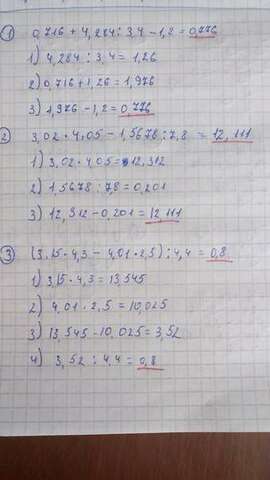 ① 0,716 + 4,284 : 3,4 - 1,2 = 0,776
1) 4,284 : 3,4 = 1,26
2) 0,716 + 1,26 = 1,976
3) 1,976 - 1,2 = 0,776
② 3,02 · 4,05 - 1,5678 : 7,8 = 12,111
1) 3,02 · 4,05 = 12,312
2) 1,5678 : 7,8 = 0,201
3) 12,312 - 0,201 = 12,111
③ (3,15 · 4,3 - 4,01 · 2,5) : 4,4 = 0,8
1) 3,15 · 4,3 = 13,545
2) 4,01 · 2,5 = 10,025
3) 13,545 - 10,025 = 3,52
4) 3,52 : 4,4 = 0,8